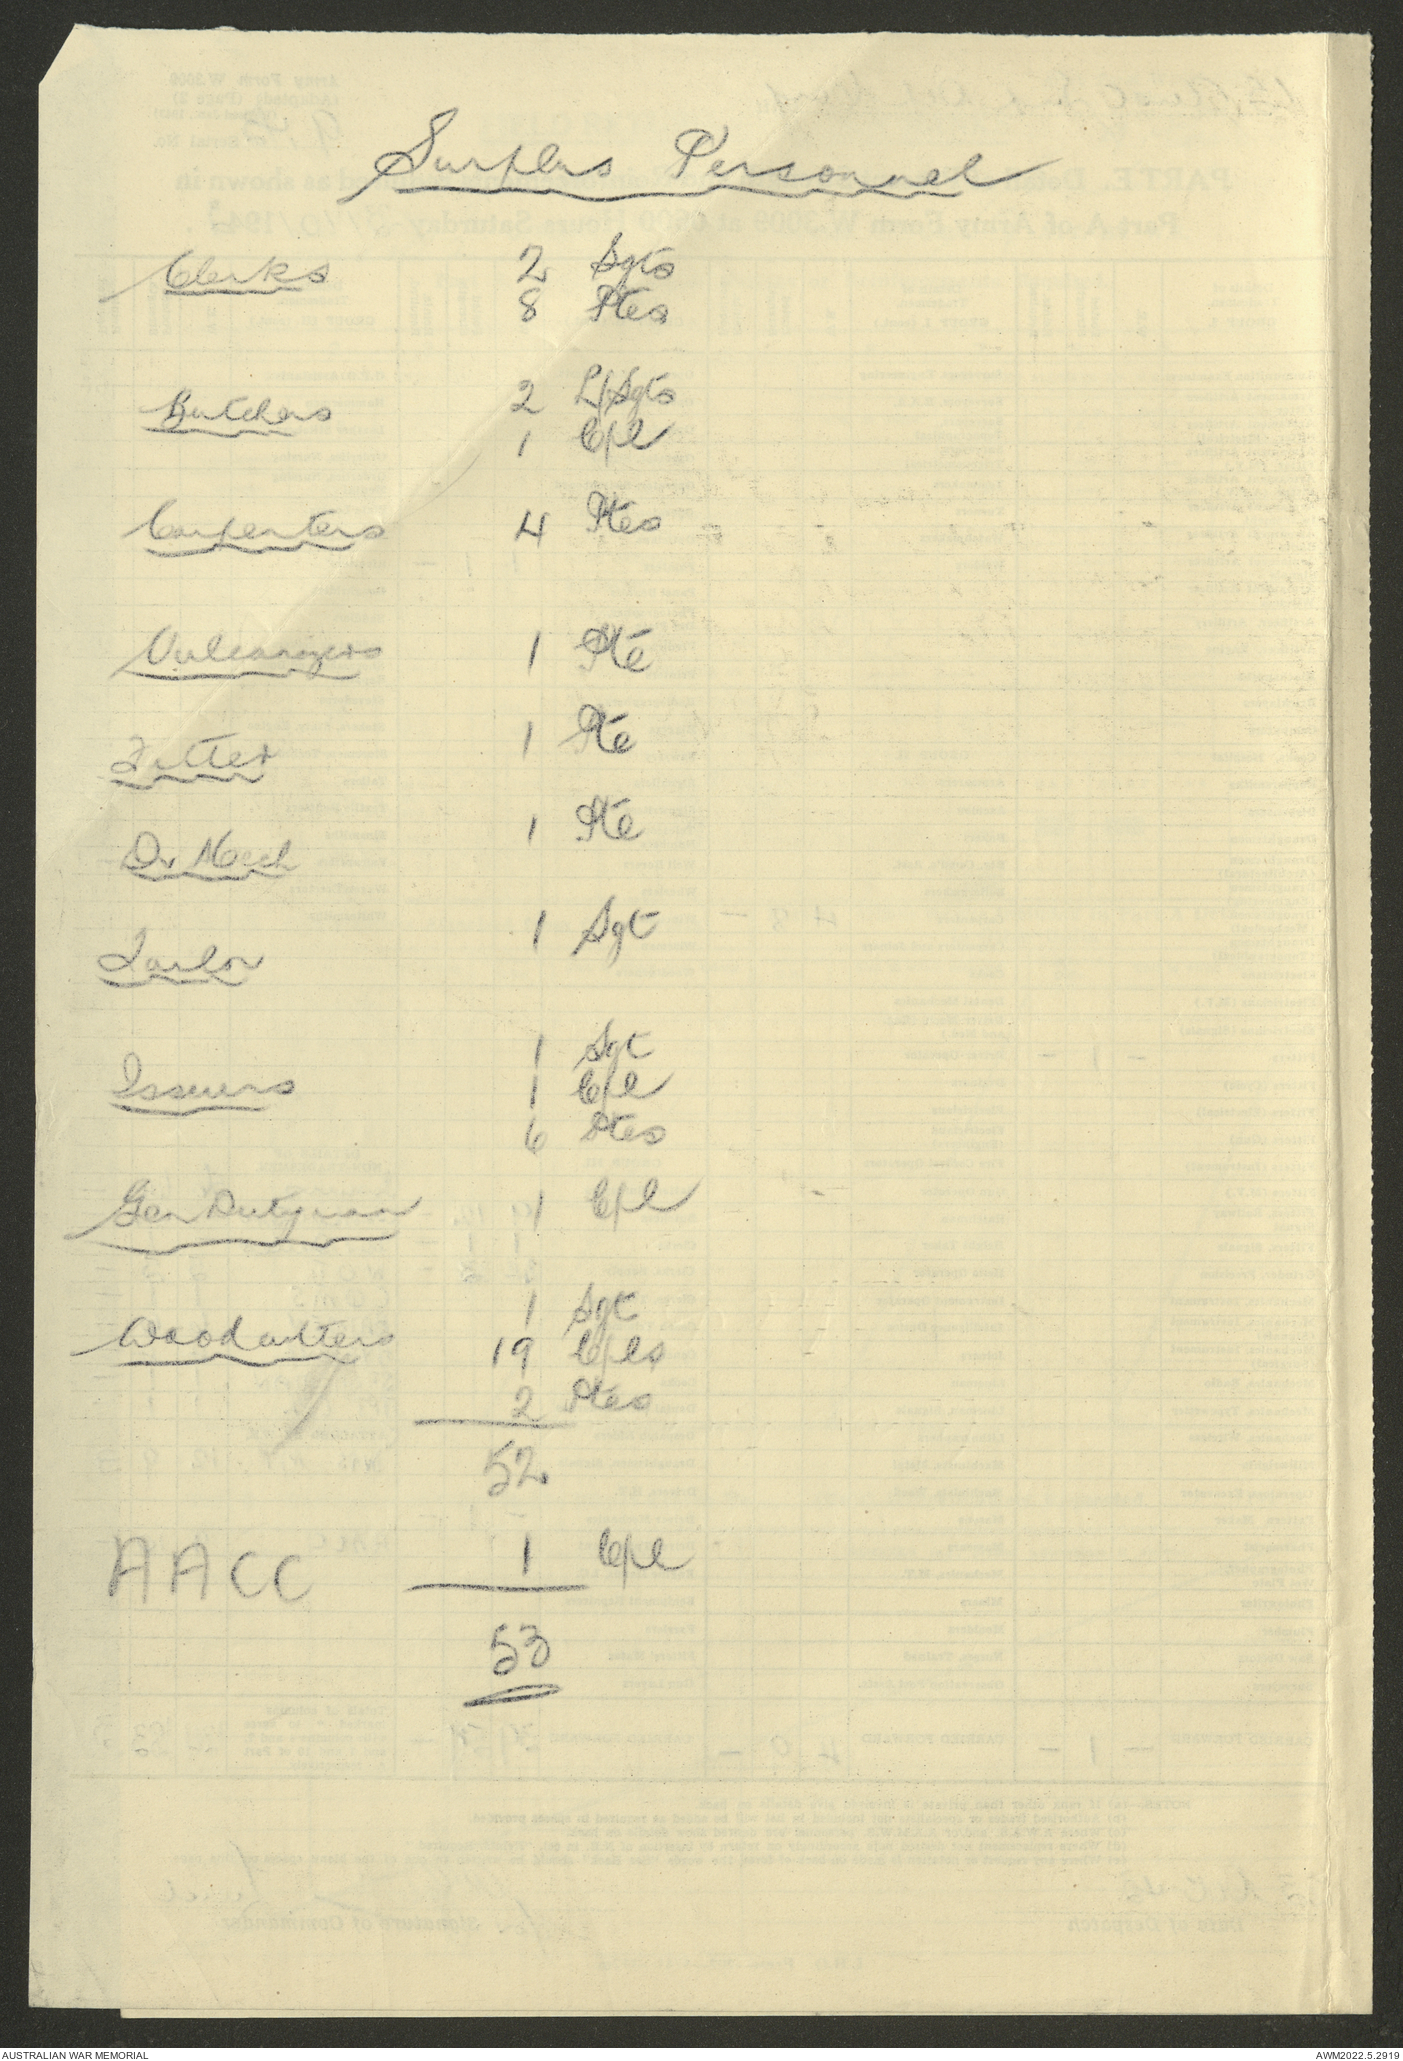 Surplus Personnel
Clerks 2 Sgts
8 Ptes
Butchers 2 L/Sgts
1 Cpl
Carpenters 4 Ptes
Vulcanizers 1 Pte
Fitter 1 Pte
Dvr Mech 1 Pte
Tailor 1 Sgt
Issuers 1 Sgt
1 Cpl
6 Ptes
Gen Dutyman 1 Cpl
Woodcutters 1 Sgt
19 Cpls
2 Ptes
52
AACC 1 Cpl
53
AUSTRALIAN WAR MEMORIAL
AWM2022.5.2919